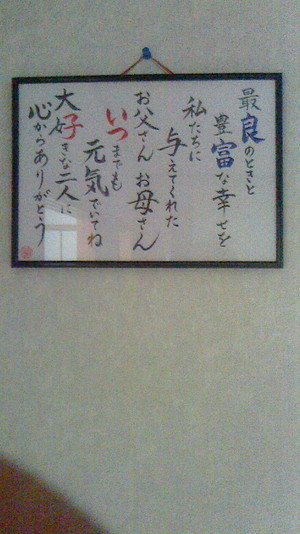 最良のときと
豊富な幸せを
私たちに
与えてくれた
お父さん お母さん
いつまでも
元気でいてね
大好きな二人に
心からありがとう